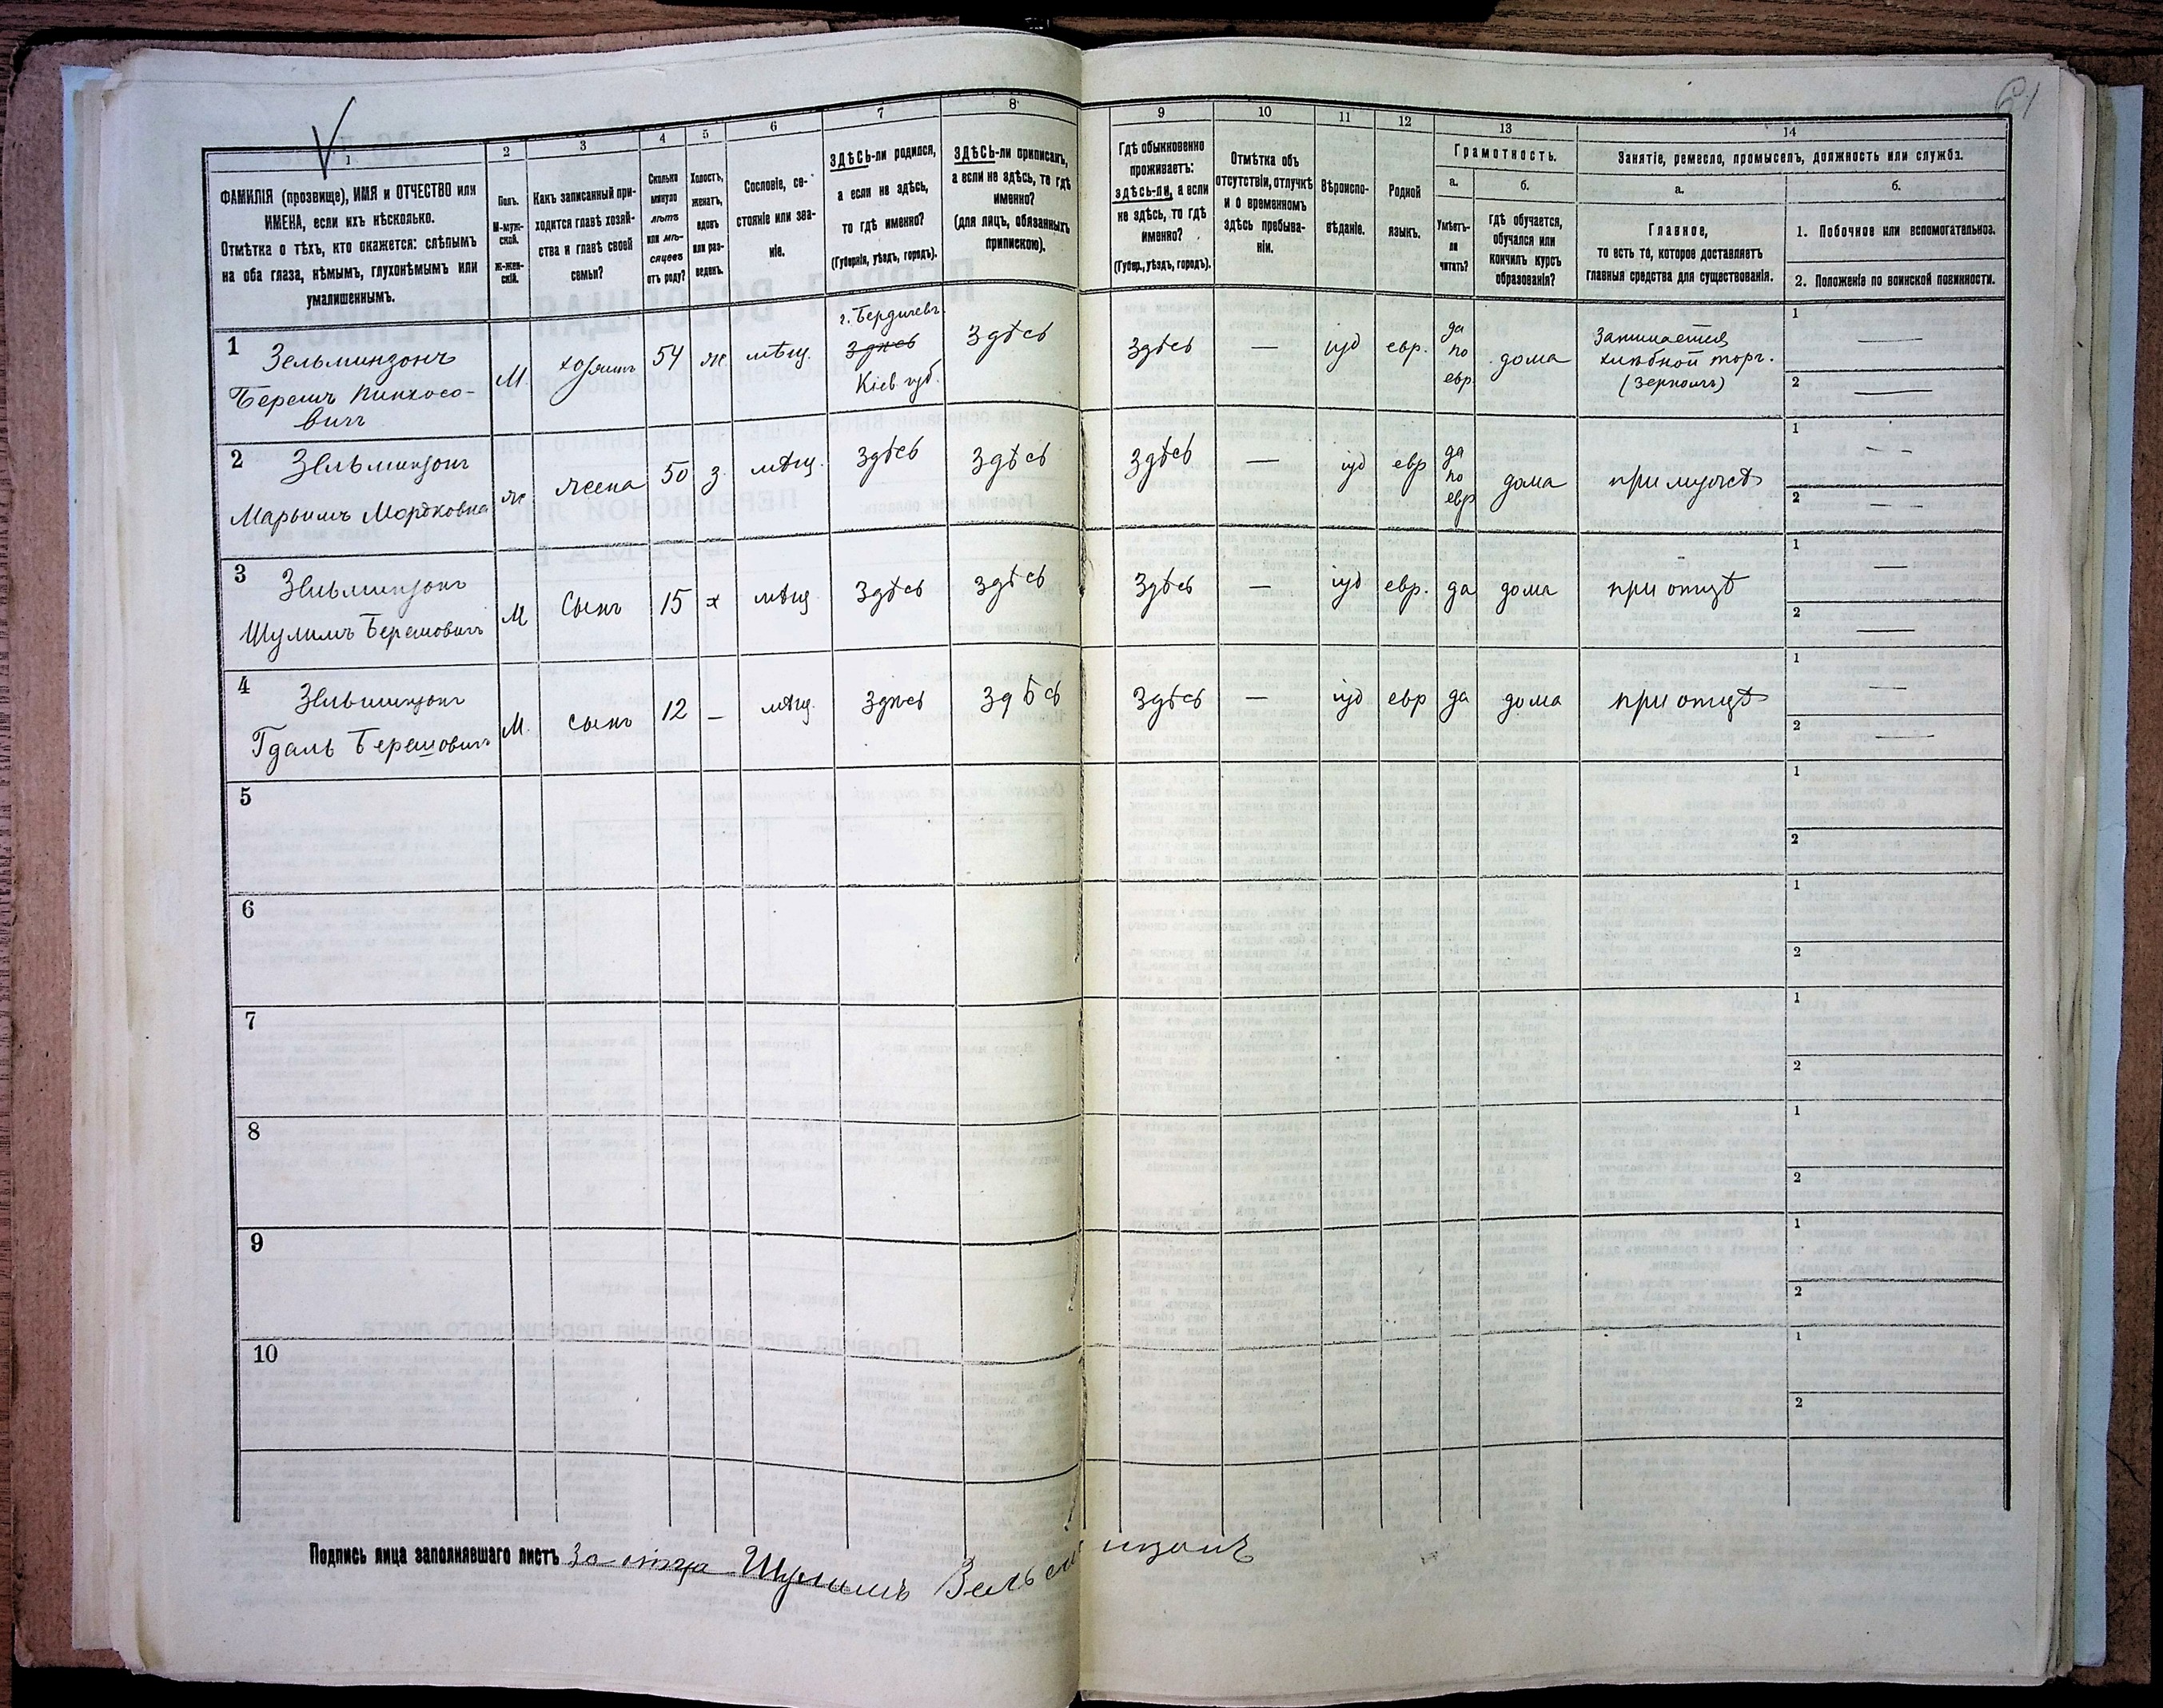 61
1
ФАМИЛІЯ (прозвище), ИМЯ и ОТЧЕСТВО или
ИМЕНА, если ихъ нѣсколько.
Отмѣтка о тѣхъ, кто окажется: слѣпымъ
на оба глаза, нѣмымъ, глухонѣмымъ или
умалишеннымъ.
2
Полъ.
М-муж-
ской.
Ж-жен-
скій.
3
Какъ записанный при-
ходится главѣ хозяй-
ства и главѣ своей
семьи?
4
Сколько
минуло
лѣтъ
или мѣ-
сяцевъ
отъ роду?
5
Холостъ,
женатъ,
вдовъ
или раз-
веденъ.
6
Сословіе, со-
стояніе или зва-
ніе.
7
ЗДѢСЬ-ли родился,
а если не здѣсь,
то гдѣ именно?
(Губернія, уѣздъ, городъ).
8
ЗДѢСЬ-ли приписанъ,
а если не здѣсь, то гдѣ
именно?
(для лицъ, обязанныхъ
припискою).
9
Гдѣ обыкновенно
проживаетъ:
здѣсь-ли, а если
не здѣсь, то гдѣ
именно?
(Губер., уѣздъ, городъ).
10
Отмѣтка объ
отсутствіи, отлучкѣ
и о временномъ
здѣсь пребыва-
ніи.
11
Вѣроиспо-
вѣданіе.
12
Родной
языкъ.
13
Грамотность.
а.
Умѣетъ-
ли
читать?
б.
гдѣ обучается,
обучался или
кончилъ курсъ
образованія?
14
Занятіе, ремесло, промыселъ, должность или служба.
а.
Главное,
то есть то, которое доставляетъ
главныя средства для существованія.
б.
1. Побочное или вспомогательное.
2. Положеніе по воинской повинности.
1
Зельминзонъ
Берешъ Пинхосо-
вичъ
М.
хозяинъ
54
ж.
мѣщ.
г. Бердичевъ.
здѣсь
Кіев. губ.
здѣсь
здѣсь
—
іуд
евр.
да
по
евр
дома
Занимается
хлѣбной торг.
(зерномъ)
1 —
2 —
2
Зельминзонъ
Марьимъ Мордковна
ж.
жена
50
з.
мѣщ.
здѣсь
здѣсь
здѣсь
—
іуд
евр
да
по
евр
дома
при мужѣ
1 — -
2 — —
3
Зельминзонъ
Шулимъ Берешовичъ
М
сынъ
15
х
мѣщ
здѣсь
здѣсь
здѣсь
—
іуд
евр.
да
дома
при отцѣ
1 —
2 —
4
Зельминзонъ
Гдаль Берешовичъ
М.
сынъ
12
—
мѣщ.
здѣсь
здѣсь
здѣсь
—
іуд
евр
да
дома
при отцѣ
1 —
2 —
5
1
2
6
1
2
7
1
2
8
1
2
9
1
2
10
1
2
Подпись лица заполнявшаго листъ за отца Шулимъ Зельминзонъ